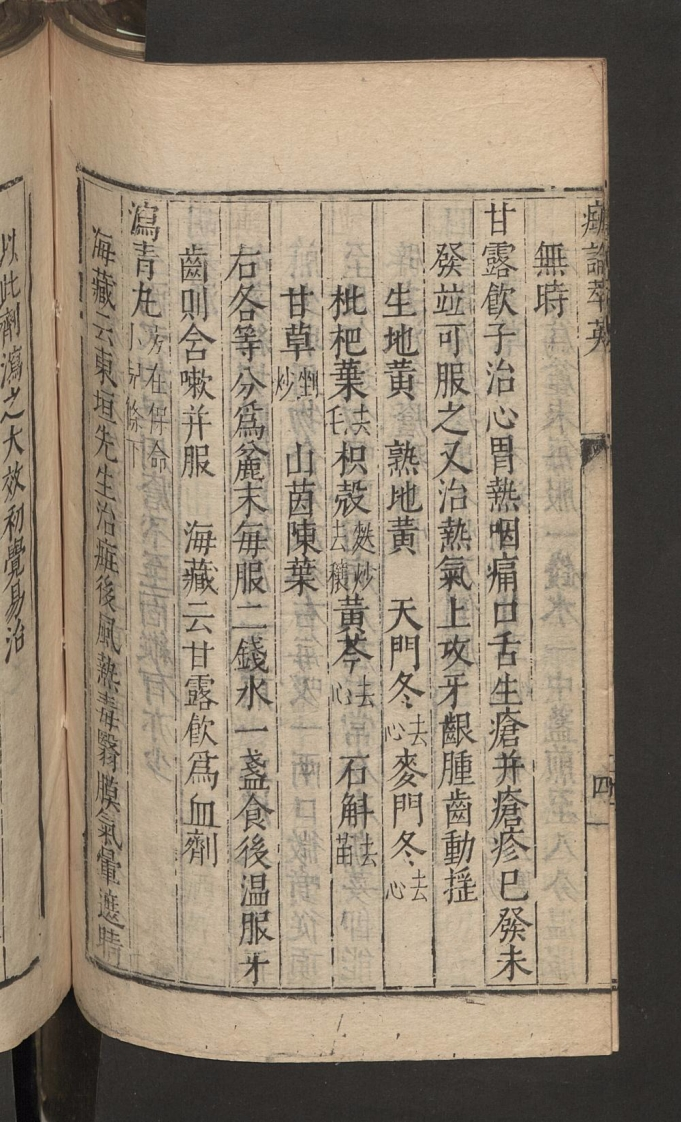 論萃英
四
無時
甘露飲子治心胃熱咽痛口舌生瘡并瘡疹已發未
發竝可服之又治熱氣上攻牙齦腫齒動揺
生地黃 熟地黃 天門冬去心 麥門冬去心
枇杷葉去毛 枳殼麩炒去穰 黃芩去心 石斛去苗
甘草剉炒 山茵陳葉
右各等分爲麄末每服二錢水一盞食後温服牙
齒則含嗽并服 海藏云甘露飲爲血劑
瀉青丸方在併命小兒條下
海藏云東垣先生治癍後風熱毒翳膜氣暈遮睛
以此劑瀉之大效初覺易治